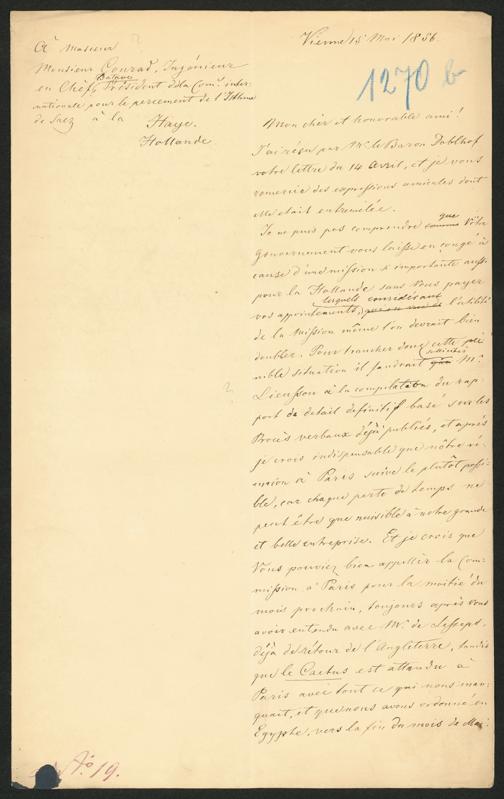 Vienne 15 Mai 1856
A Monsieur
Monsieur Conrad, Ingénieur
en Chef, Président de la Com. inter-
nationale pour le percement de l'Isthme
de Suez à la Haye.
Hollande
1270 b
Mon cher et honorable ami!
J'ai reçu par Mr. le Baron
votre lettre du 14 Avril, et je vous
remercie des expressions amicales dont
elle était entremêlée.
Je ne puis pas comprendre comme que Votre
gouvernement vous laisse en congé à
cause d'une mission si importante aussi
pour la Hollande sans Vous payer
vos appointements, lesquels considérant l'utilité
de la Mission même l'on devrait bien
doubler. Pour trancher donc cette pé-
nible situation il faudrait que Mr.
Lieusson à la compilation du rap-
port de detail definitif basé sur les
Procès verbaux déjà publiés, et après
je crois indispensable que nôtre ré-
union à Paris suive le plutôt possi-
ble, car chaque perte de temps ne
peut être que nuisible à notre grande
et belle entreprise. Et je crois que
Vous pouviez bien appeller la Com-
mission à Paris pour la moitié du
mois prochain, toujours après vous
avoir entendu avec Mr. de Lesseps,
déjà de rétour de l'Angleterre, tandis
que le Caetus est attendu à
Paris avec tout ce qui nous man-
quait, et que nous avons ordonné en
Egypte, vers la fin du mois de Mai.
No. 19.